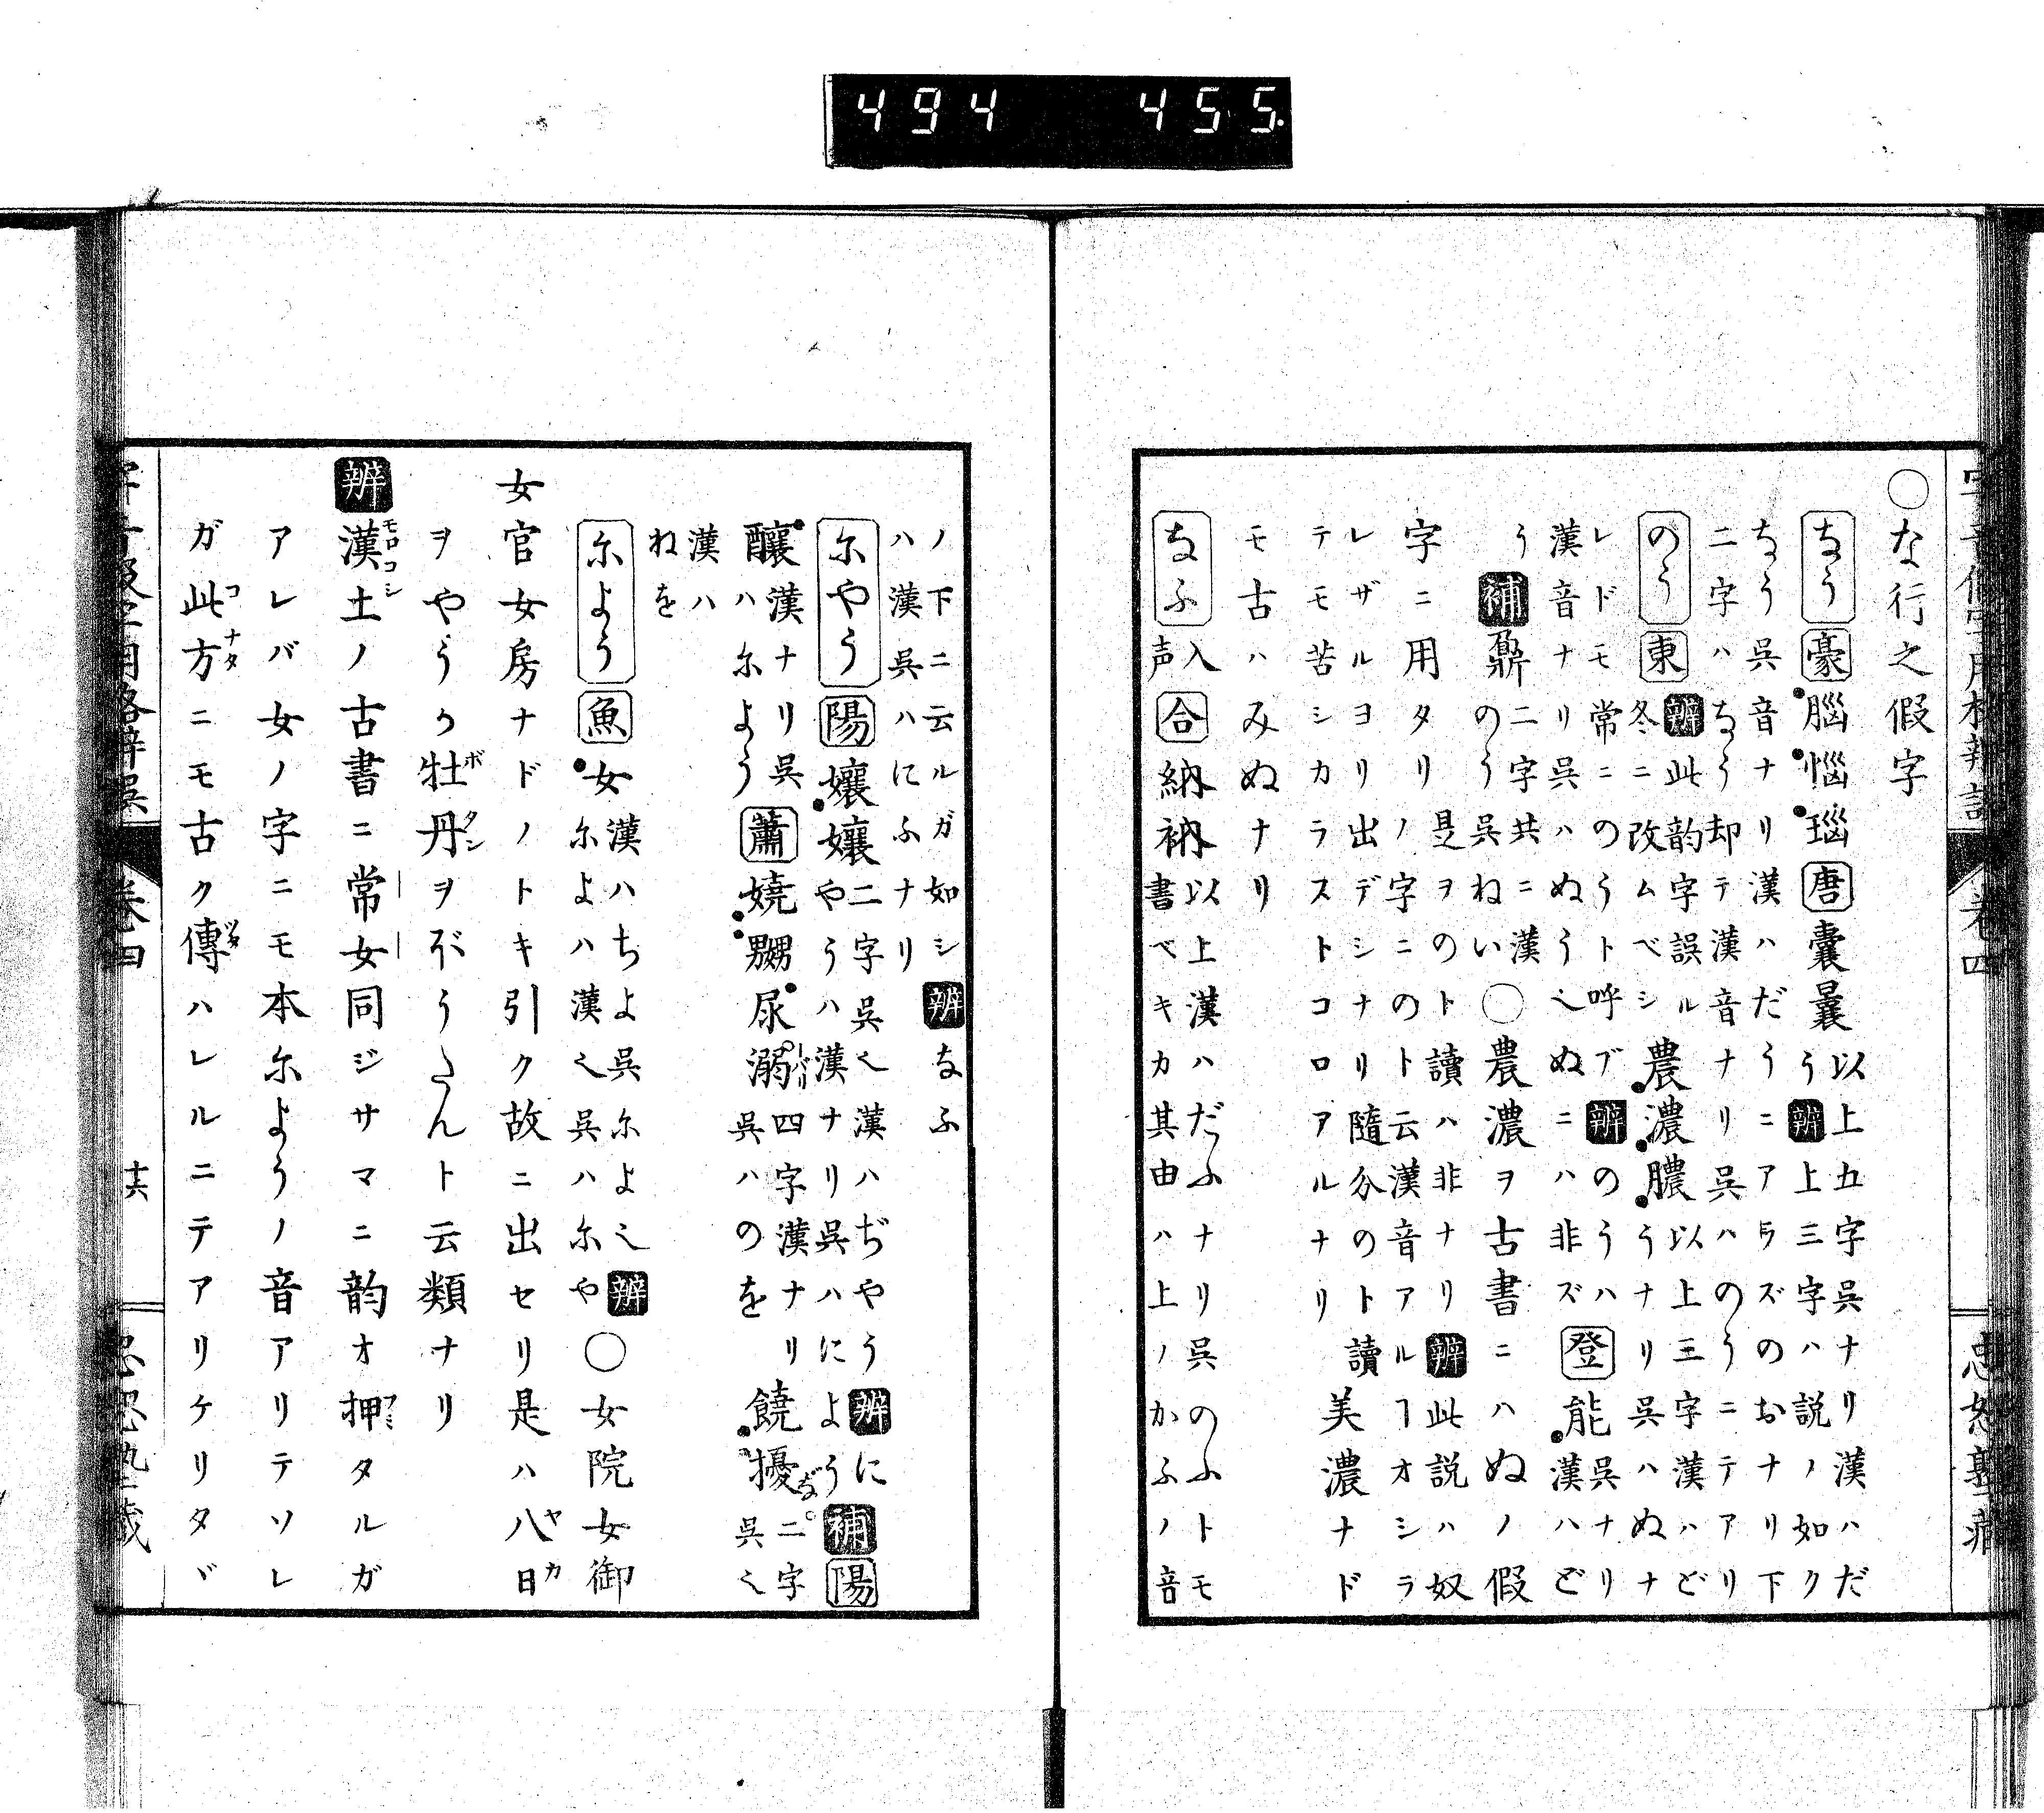 494 455
○な行之假字
なう 豪 腦惱瑙 唐 囊曩 以上五字呉ナリ漢ハだ
う 辨 上三字ハ説ノ如ク
なう呉音ナリ漢ハだうニアラズのおナリ下
二字ハなう却テ漢音ナリ呉ハのうニテアリ
のう 東 冬 辨 此韵字誤ル
ニ改ムベシ 農濃膿 以上三字漢ハど
うナリ呉ハぬナ
レドモ常ニのうト呼ブ 辨 のうハ
漢音ナリ呉ハぬう也ぬニハ非ズ 登 能 呉ナリ
漢ハど
う 補 鼐 二字共ニ漢
のう呉ねい ○農濃ヲ古書ニハぬノ假
字ニ用タリ 是ヲのト讀ハ非ナリ 辨 此説ハ奴
ノ字ニのト云漢音アルヿオシラ
レザルヨリ出デシナリ隨分のト讀
テモ苦シカラストコロアルナリ 美濃ナド
モ古ハみぬナリ
なふ 入声 合 納衲 以上漢ハだふナリ呉のふトモ
書ベキカ其由ハ上ノかふノ音
卷四
忠恕塾藏
ノ下ニ云ルガ如シ 辨 なふ
ハ漢呉ハにふナリ
にやう 陽 孃孃 二字呉也漢ハぢやう 辨 に
やうハ漢ナリ呉ハによう 補 陽
釀 漢ナリ呉
ハによう 蕭 嬈嬲尿溺 四字漢ナリ
呉ハのを 饒擾 二字
呉也
漢ハ
ねを
によう 魚 女 漢ハちよ呉によ也 辨
によハ漢也呉ハにや ○女院女御
女官女房ナドノトキ引ク故ニ出セリ是ハ八日
ヲやうか牡丹ヲぼうたんト云類ナリ
辨 漢土ノ古書ニ常女同ジサマニ韵オ押タルガ
アレバ女ノ字ニモ本にようノ音アリテソレ
ガ此方ニモ古ク傳ハレルニテアリケリタヾ
卷四
十六